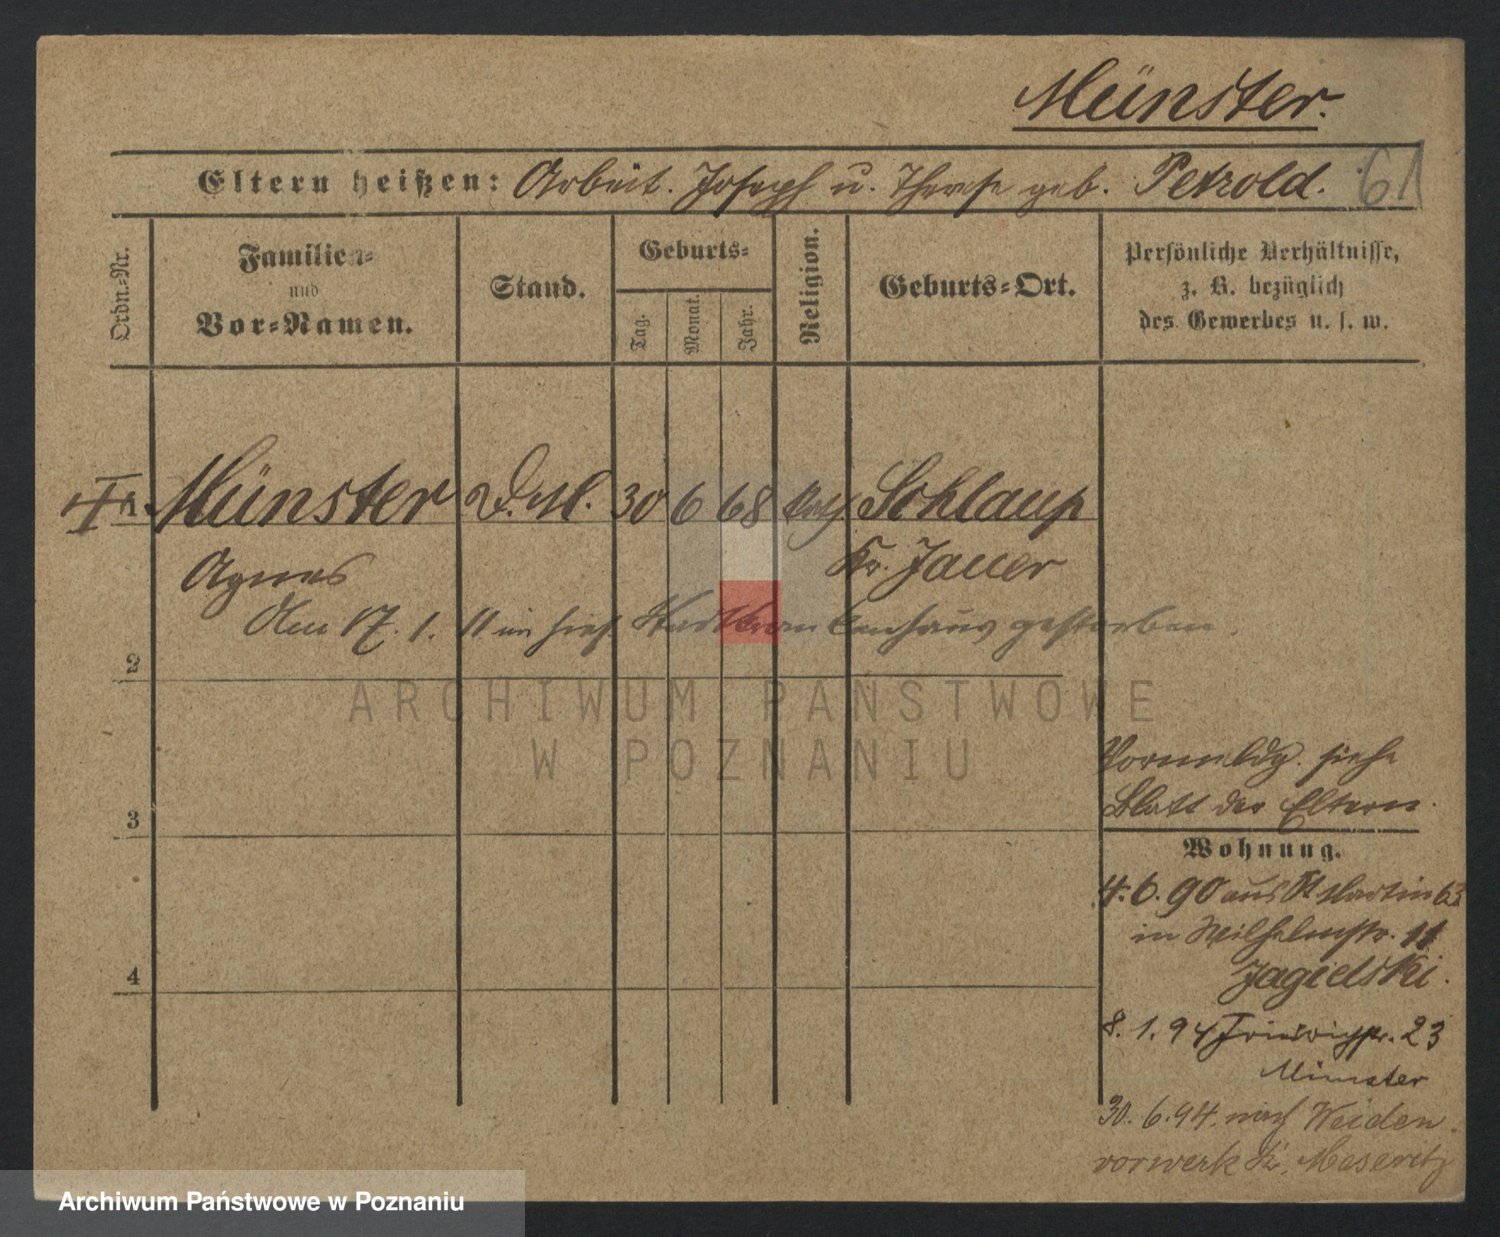 Münster.
Eltern heißen: Arbeit. Joseph u. Therese geb. Petzold. 61
Ordn.-Nr.
Familien-
und
Vor-Namen.
Stand.
Geburts-
Tag.
Monat.
Jahr.
Religion.
Geburts-Ort.
Persönliche Verhältnisse,
z. B. bezüglich
des Gewerbes u. s. w.
1 Münster D. M. 30 6 68 kath Schlaup
Agnes Kr. Jauer
Am 17. 1. 11 im hies. Stadtkrankenhaus gestorben.
2
3
4
Vormeldg. siehe
Blatt der Eltern.
Wohnung.
4. 6. 90 aus St Martin 63
in Wilhelmstr. 11
Jagielski.
8. 1. 94 Friedrichstr. 23
Münster
30. 6. 94. nach Weiden-
vorwerk Kr. Meseritz
ARCHIWUM PAŃSTWOWE
W POZNANIU
Archiwum Państwowe w Poznaniu